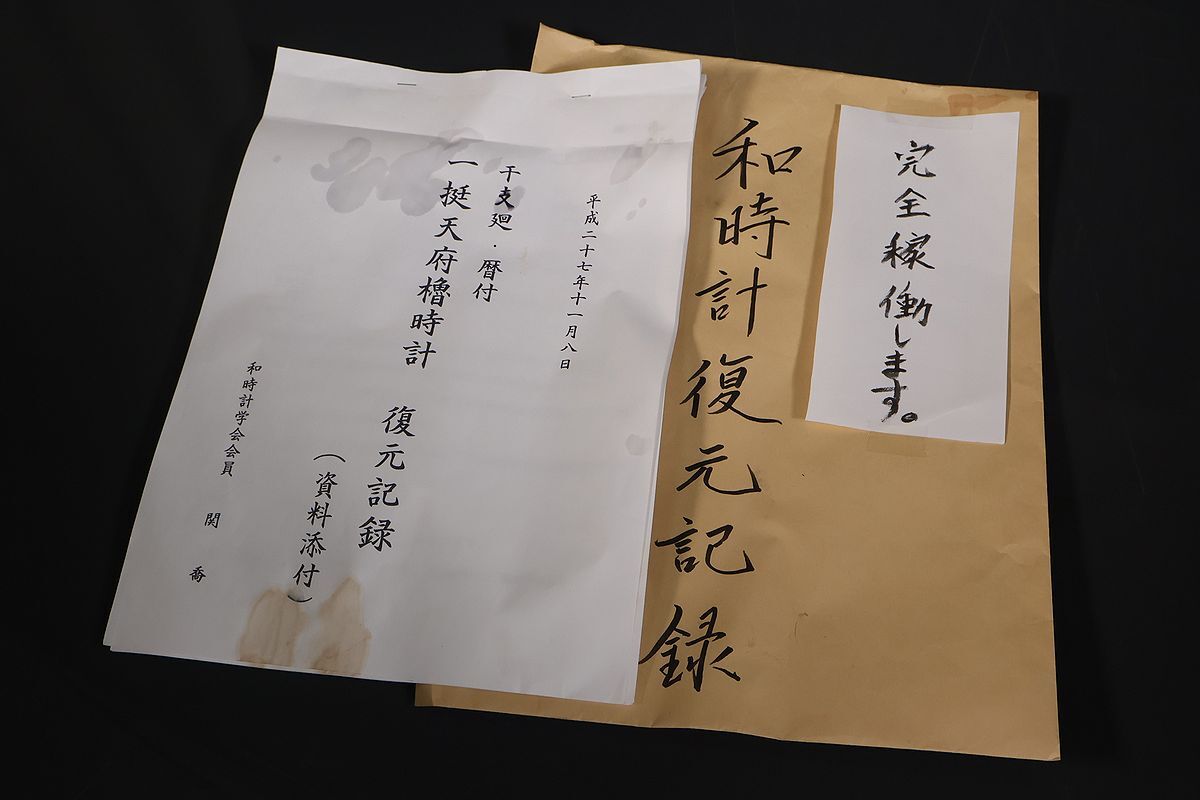 平成二十七年十一月八日
干支廻・暦付
一挺天府櫓時計 復元記録
(資料添付)
和時計学会会員 関 喬
完全稼働します。
和時計復元記録